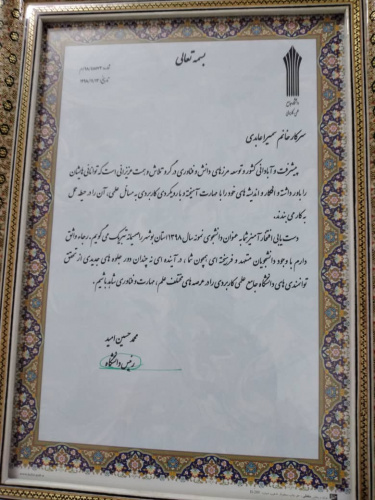 بسمه تعالی
دانشگاه جامع
علمی کاربردی
سرکار خانم سمیرا عابدی
پیشرفت و آبادانی کشور و توسعه مرزهای دانش و فناوری در گرو تلاش و همت عزیزانی است که توانائی هایشان
را باور داشته و افکار و اندیشه های خود را با مهارت آمیخته و با رویکردی کاربردی به مسائل علمی، آن را در حیطه عمل
به کار می بندند.
دست یابی افتخار آمیز شما به عنوان دانشجوی نمونه سال ۱۳۹۸ استان بوشهر را صمیمانه تبریک می گویم. رجاء واثق
دارم با وجود دانشجویان متعهد و فرهیخته ای همچون شما، در آینده ای نه چندان دور جلوه های جدیدی از تحقق
توانمندی های دانشگاه جامع علمی کاربردی را در عرصه های مختلف علم، مهارت و فناوری شاهد باشیم.
محمد حسین امید
رئیس دانشگاه